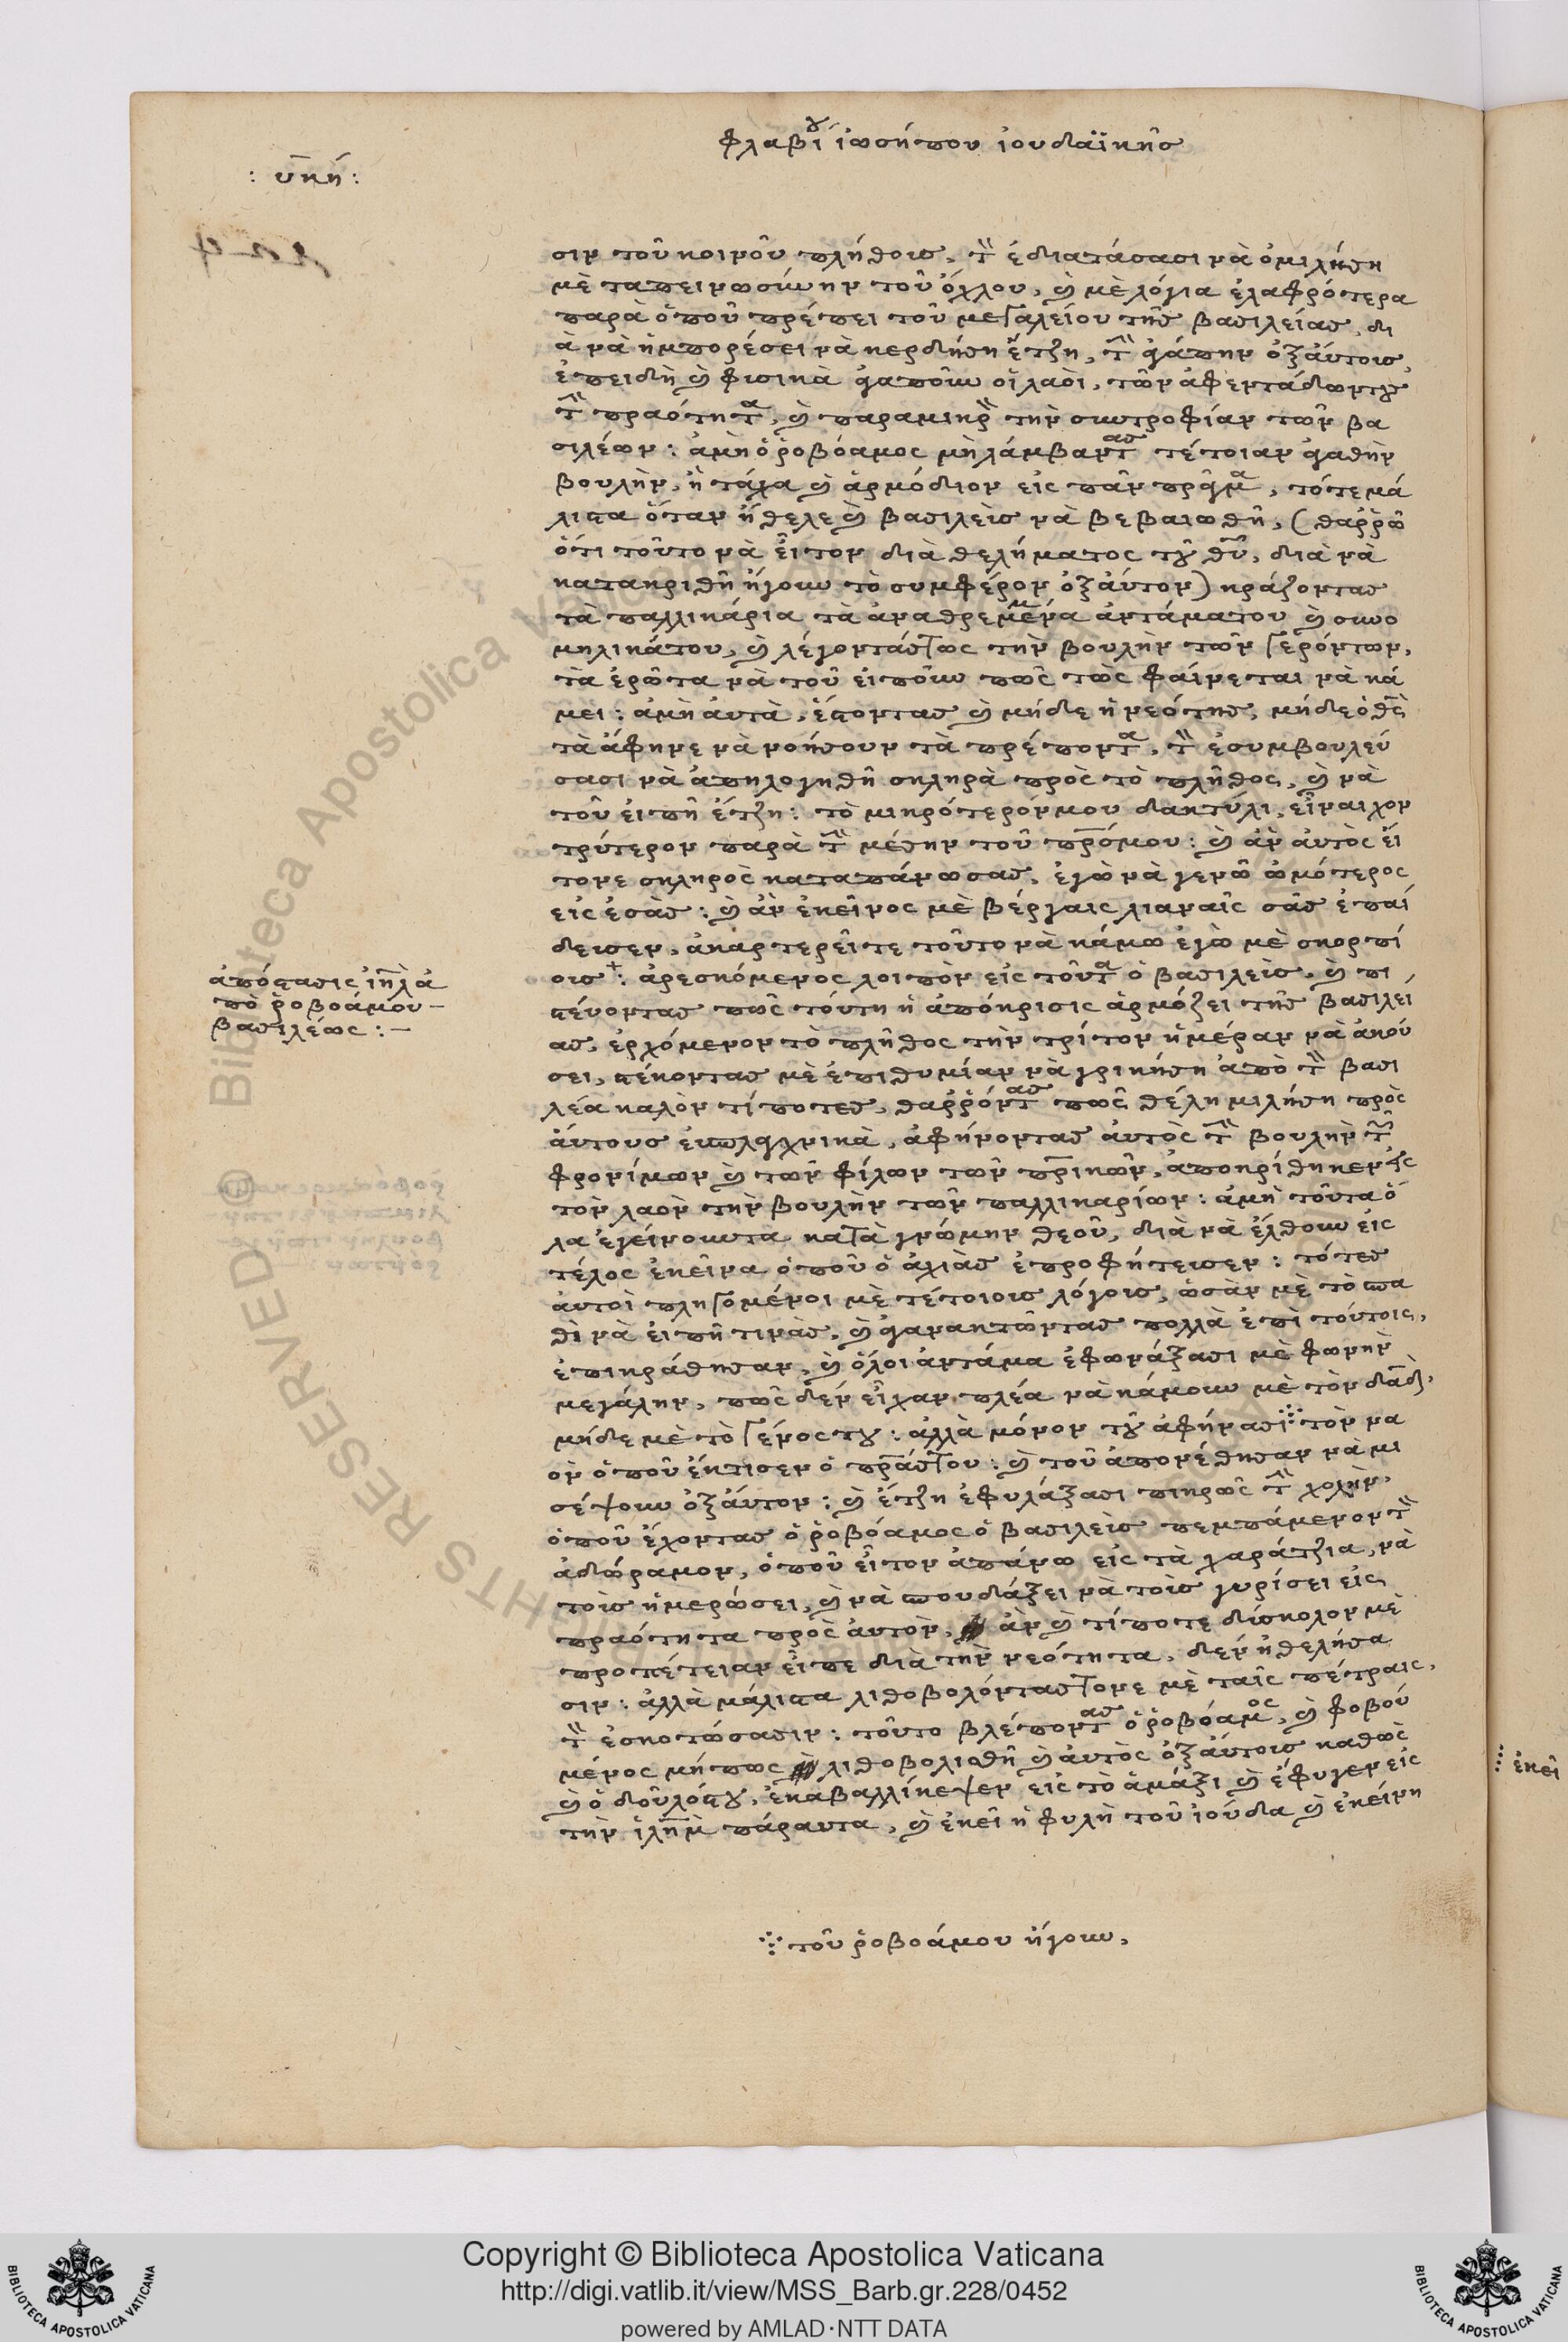 φλαβίου ἰωσήπου ἰουδαϊκῆς
: υκη :
σιν τοῦ κοινοῦ πλήθους, τὸν ἐδιατάσασι νὰ ὁμιλήση
μὲ ταπεινωσύνην τοῦ ὄχλου, καὶ μὲ λόγια ἐλαφρότερα
παρὰ ὁποῦ πρέπει τοῦ μεγαλείου τῆς βασιλείας, δι
ὰ νὰ ἠμπορέσει νὰ κερδήση ἔτζη, τὴν ἀγάπην ὀξ' αὐτους,
ἐπειδὴ καὶ φυσικὰ ἀγαποῦν οἱ λαοὶ, τῶν ἀφεντάδωντους
τὴν πραότητα, καὶ παραμικρὴν τὴν συντροφίαν τῶν βα
σιλέων : ἀμὴ ὁ ῥοβόαμος μὴ λάμβανωντας τέτοιαν ἀγαθὴν
βουλὴν, ἢ τάχα καὶ ἁρμόδιον εἰς πᾶν πρᾶγμα, τότε μά
λιστα ὅταν ἤθελε καὶ βασιλεὺς νὰ βεβαιωθῆ, (θαῤῥῶ
ὅτι τοῦτο νὰ εἶτον διὰ θελήματος τοῦ θεοῦ, διὰ νὰ
κατακριθῆ ἤγουν τὸ συμφέρον ὀξ' αὐτὸν) κράζοντας
τὰ παλλικάρια τὰ ἀναθρεμμένα ἀντάματου καὶ συνο
μηλικάτου, καὶ λέγοντάςτως τὴν βουλὴν τῶν γερόντων,
τὰ ἐρῶτα νὰ τοῦ εἰποῦν πῶς τῶς φαίνεται νὰ κά
μει : ἀμὴ αὐτὰ, ἔστοντας καὶ μήδε ἡ νεότης, μήδε ὁ θεὸς
τὰ ἄφηνε νὰ νοήσουν τὰ πρέποντα, τὸν ἐσυμβουλεύ
σασι νὰ ἀπηλογηθῆ σκληρὰ πρὸς τὸ πλῆθος, καὶ νὰ
τοῦ εἰπῆ ἔτζη : τὸ μικρότερόνμου δακτύλι, εἶναι χον
τρύτερον παρὰ τὴν μέσην τοῦ πατρόςμου : καὶ ἂν αὐτὸς εἴ
τονε σκληρὸς καταπάνωσας, ἐγὼ νὰ γενῶ ὠμότερος
εἰς ἐσᾶς : καὶ ἂν ἐκεῖνος μὲ βέργαις λιαναῖς σᾶς ἐπαί
δευσεν, ἀναρτερεῖτε τοῦτο νὰ κάμω ἐγὼ μὲ σκορπί
ους : ἀρεσκόμενος λοιπὸν εἰς τοῦτα ὁ βασιλεὺς, καὶ πι
στεύοντας πῶς τούτη ἡ ἀπόκρισις ἁρμόζει τῆς βασιλεί
ας, ἐρχόμενον τὸ πλῆθος τὴν τρίτην ἡμέραν νὰ ἀκού
σει, στέκοντας μὲ ἐπιθυμίαν νὰ γρικήση ἀπὸ τὸν βασι
λέα καλὸν τίποτες, θαῤῥόντας πῶς θέλη μιλήση πρὸς
αὐτους εὐσπλαγχνικὰ, ἀφήνοντας αὐτὸς τὴν βουλὴν τῶν
φρονίμων καὶ τῶν φίλων τῶν πατρικῶν, ἀποκρίθηκεν εἰς
τὸν λαὸν τὴν βουλὴν τῶν παλλικαρίων : ἀμὴ τοῦτα ὅ
λα ἐγείνουντα κατὰ γνώμην θεοῦ, διὰ νὰ ἔλθουν εἰς
τέλος ἐκεῖνα ὁποῦ ὁ ἀχιὰς ἐπροφήτευσεν : τότες
αὐτοὶ πληγομένοι μὲ τέτοιους λόγους, ὡσὰν μὲ τὸ σπα
θὶ νὰ εἰπῆ τινὰς, καὶ ἀγανακτῶντας πολλὰ ἐπὶ τούτοις,
ἐπικράθησαν, καὶ ὅλοι ἀντάμα ἐφωνάξασι μὲ φωνὴν
μεγάλην, πῶς δὲν εἶχαν πλέα νὰ κάμουν μὲ τὸν δαβὶδ,
μήδε μὲ τὸ γένοςτου : ἀλλὰ μόνον τοῦ ἀφήνασι ⁘ τὸν να
ὸν ὁποῦ ἔκτισεν ὁ πατέραςτου : καὶ τοῦ ἀπονέθησαν νὰ μι
σέψουν ὀξ' αὐτον : καὶ ἔτζη ἐφυλάξασι πικρῶς τὴν χολὴν,
ὁποῦ ἔχοντας ὁ ῥοβόαμος ὁ βασιλεὺς πεμπάμενον τὸν
ἀδώραμον, ὁποῦ εἶτον ἀπάνω εἰς τὰ χαράτζια, νὰ
τοὺς ἡμερώσει, καὶ νὰ σπουδάξει νὰ τοὺς γυρίσει εἰς
πραότητα πρὸς αὐτὸν, ἂν καὶ τίποτε δύσκολον μὲ
προπέτειαν εἶπε διὰ τὴν νεότητα, δὲν ἠθελήσα
σιν : ἀλλὰ μάλιστα λιθοβολόντας τονε μὲ ταῖς πέτραις,
τὸν ἐσκοτώσασιν : τοῦτο βλέποντας ὁ ῥοβόαμος, καὶ φοβού
μενος μήπως λιθοβολισθῆ καὶ αὐτὸς ὀξ' αὐτους καθὼς
καὶ ὁ δοῦλόςτου, ἐκαβαλλίκεψεν εἰς τὸ ἁμάξι καὶ ἔφυγεν εἰς
τὴν ἱλημ πάραυτα, καὶ ἐκεῖ ἡ φυλὴ τοῦ ἰούδα καὶ ἐκείνη
⁘ τοῦ ῥοβοάμου ἤγουν,
ἀπόστασις ἰηλ ἀ
πὸ ῥοβοάμου –
βασιλέως : –
⁝ ἐκεῖ
Biblioteca Apostolica
RIGHTS RESERVED ©
Copyright © Biblioteca Apostolica Vaticana
http://digi.vatlib.it/view/MSS_Barb.gr.228/0452
powered by AMLAD·NTT DATA
BIBLIOTECA APOSTOLICA VATICANA
BIBLIOTECA APOSTOLICA VATICANA